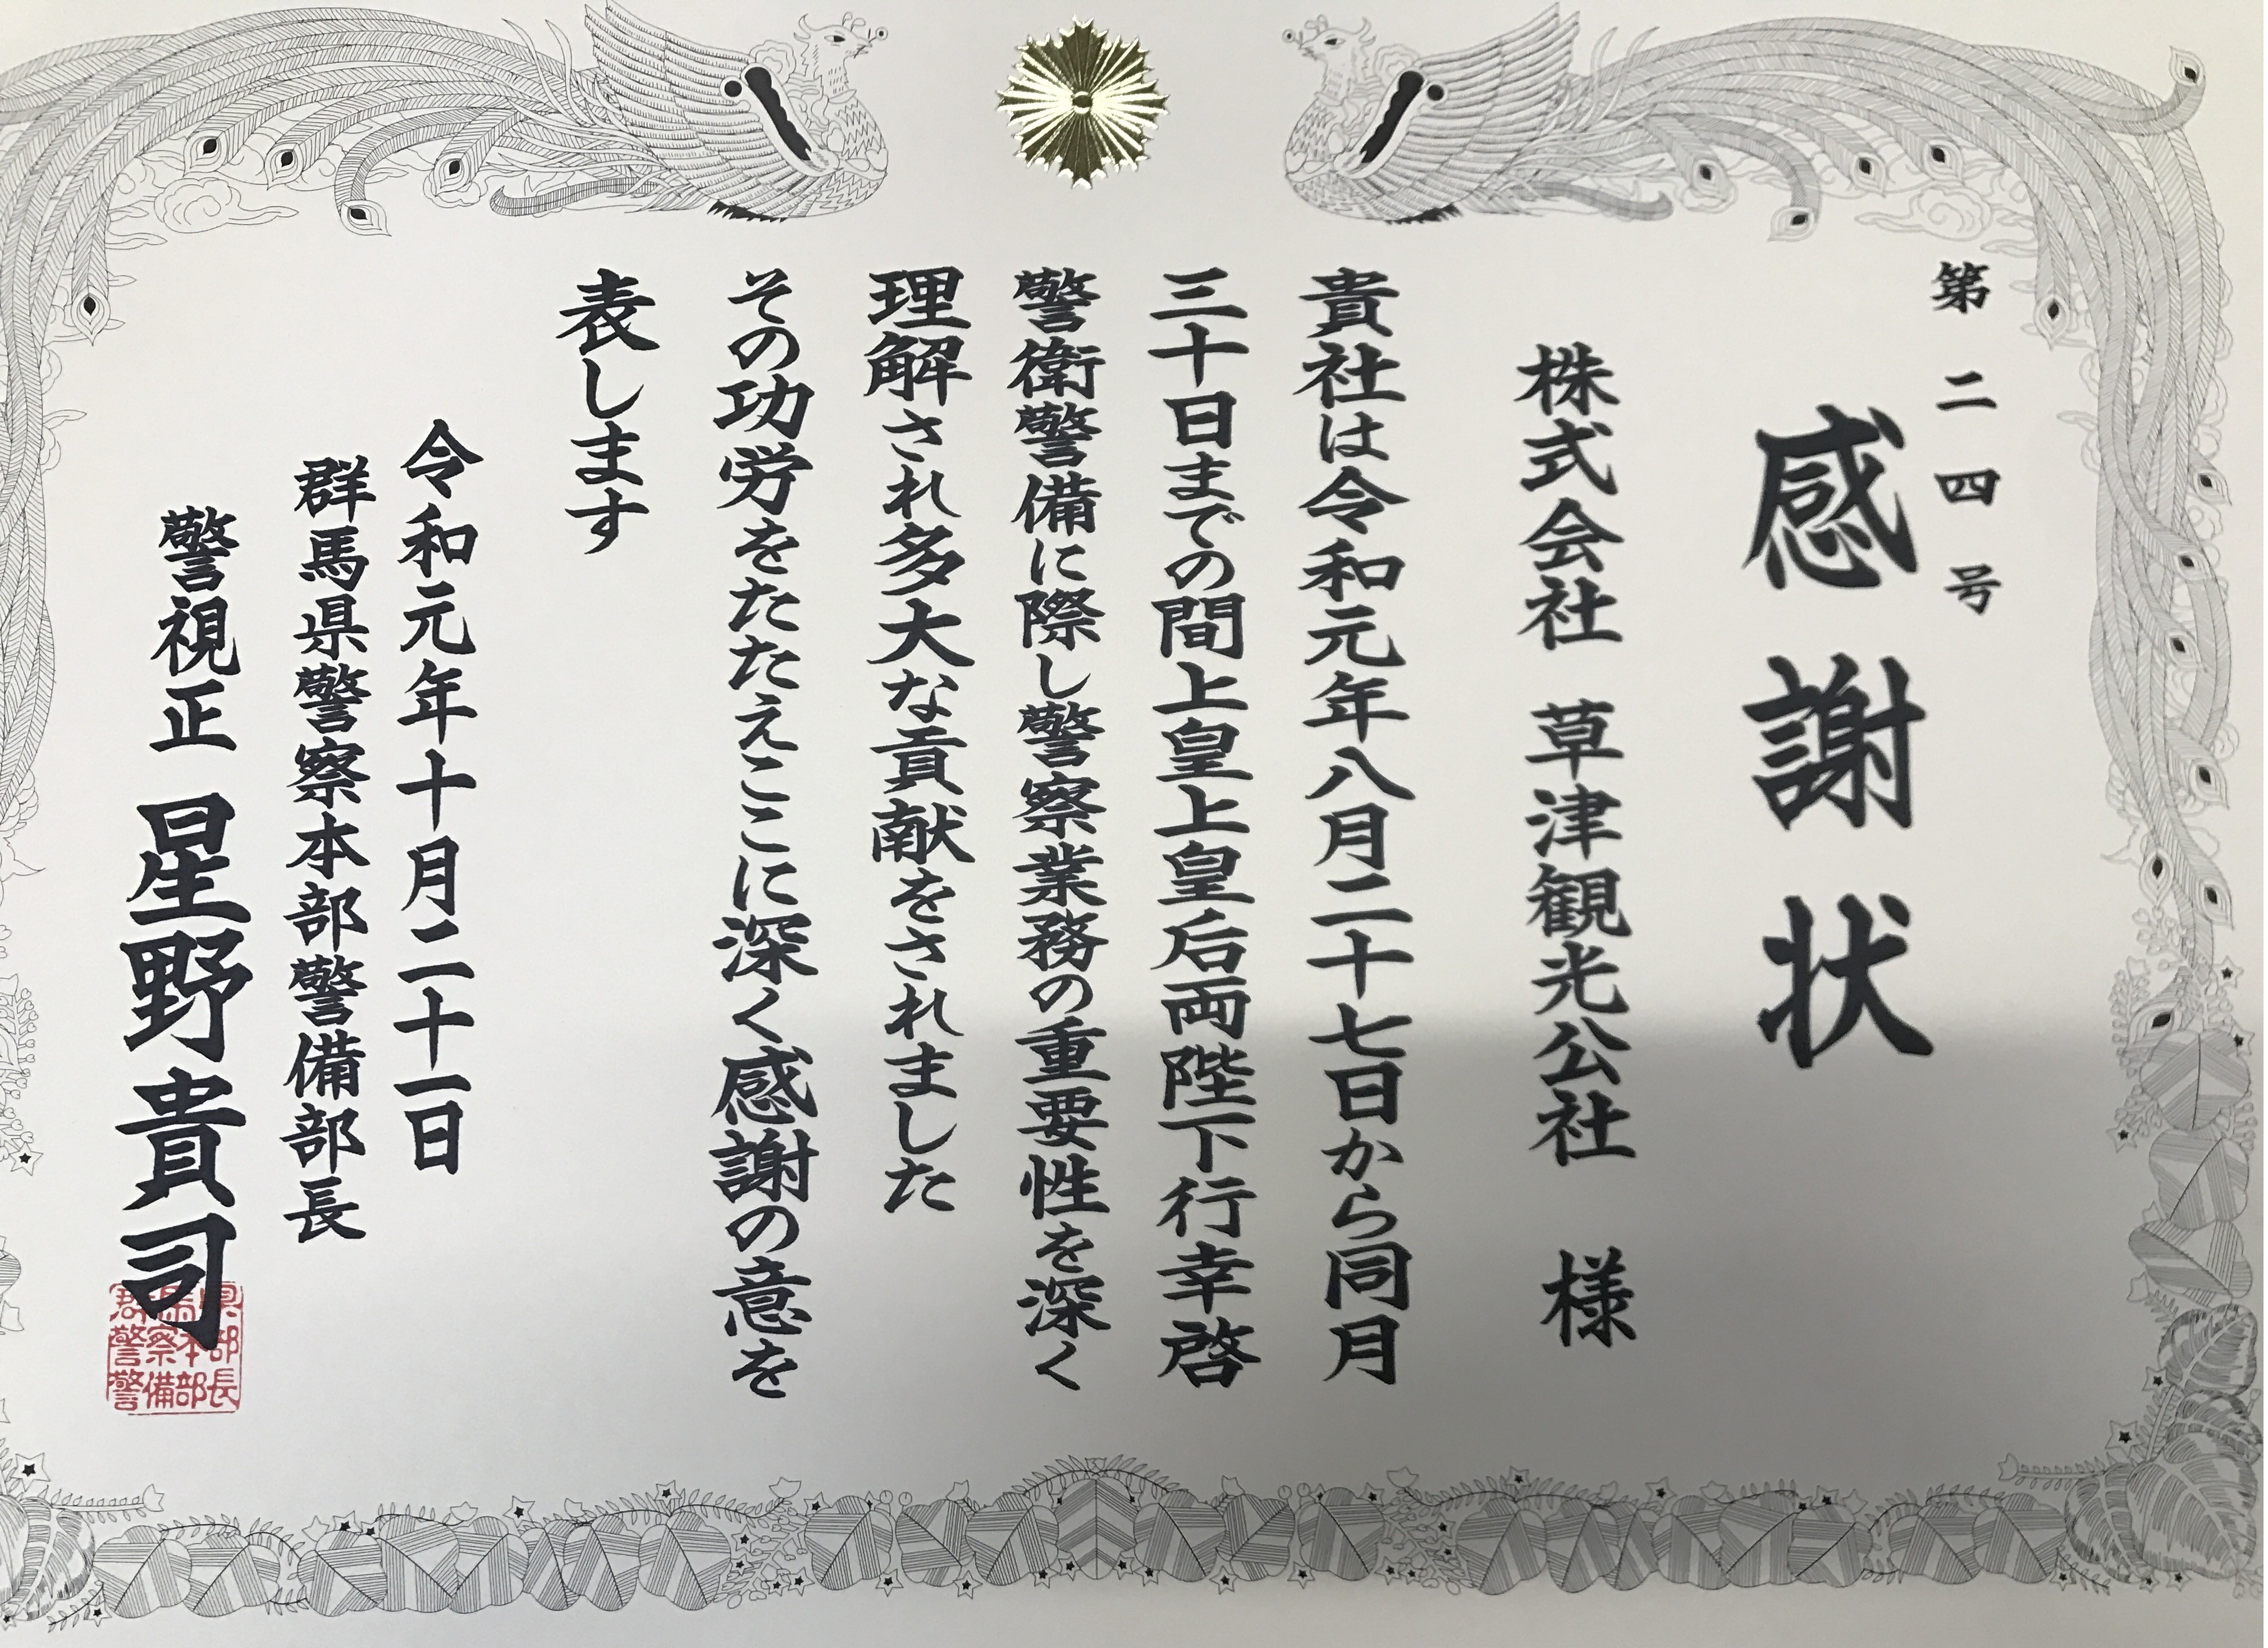 第二四号
感謝状
株式会社 草津観光公社 様
貴社は令和元年八月二十七日から同月
三十日までの間上皇上皇后両陛下行幸啓
警衛警備に際し警察業務の重要性を深く
理解され多大な貢献をされました
その功労をたたえここに深く感謝の意を
表します
令和元年十月二十一日
群馬県警察本部警備部長
警視正 星野貴司
群馬県
警察本部
警備部長